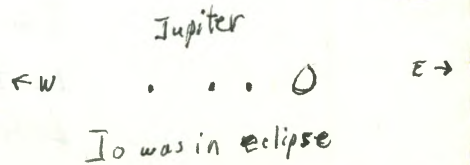 Jupiter
← W E →
Io was in eclipse